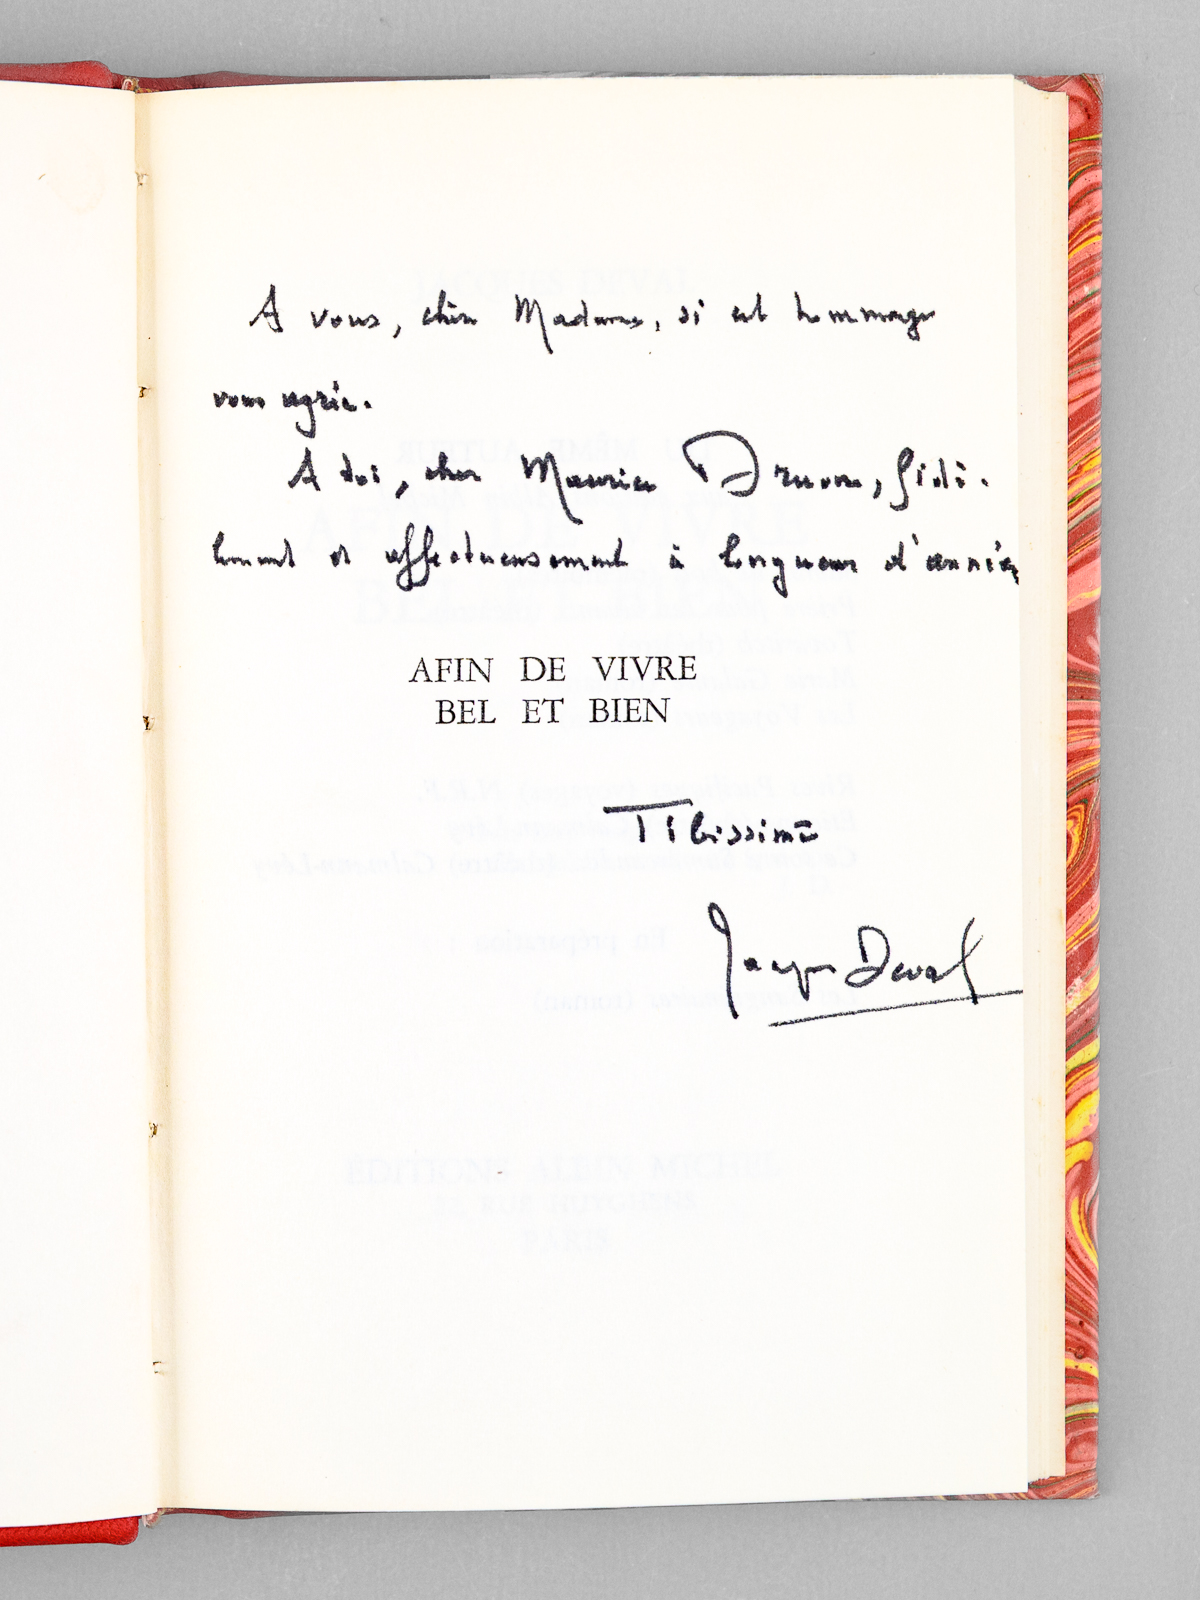 A vous, chère Madame, si cet hommage
vous agrée.
A toi, cher Maurice Druon, fidè-
lement et affectueusement à longueur d'année
AFIN DE VIVRE
BEL ET BIEN
Tibissime
Jacques Deval